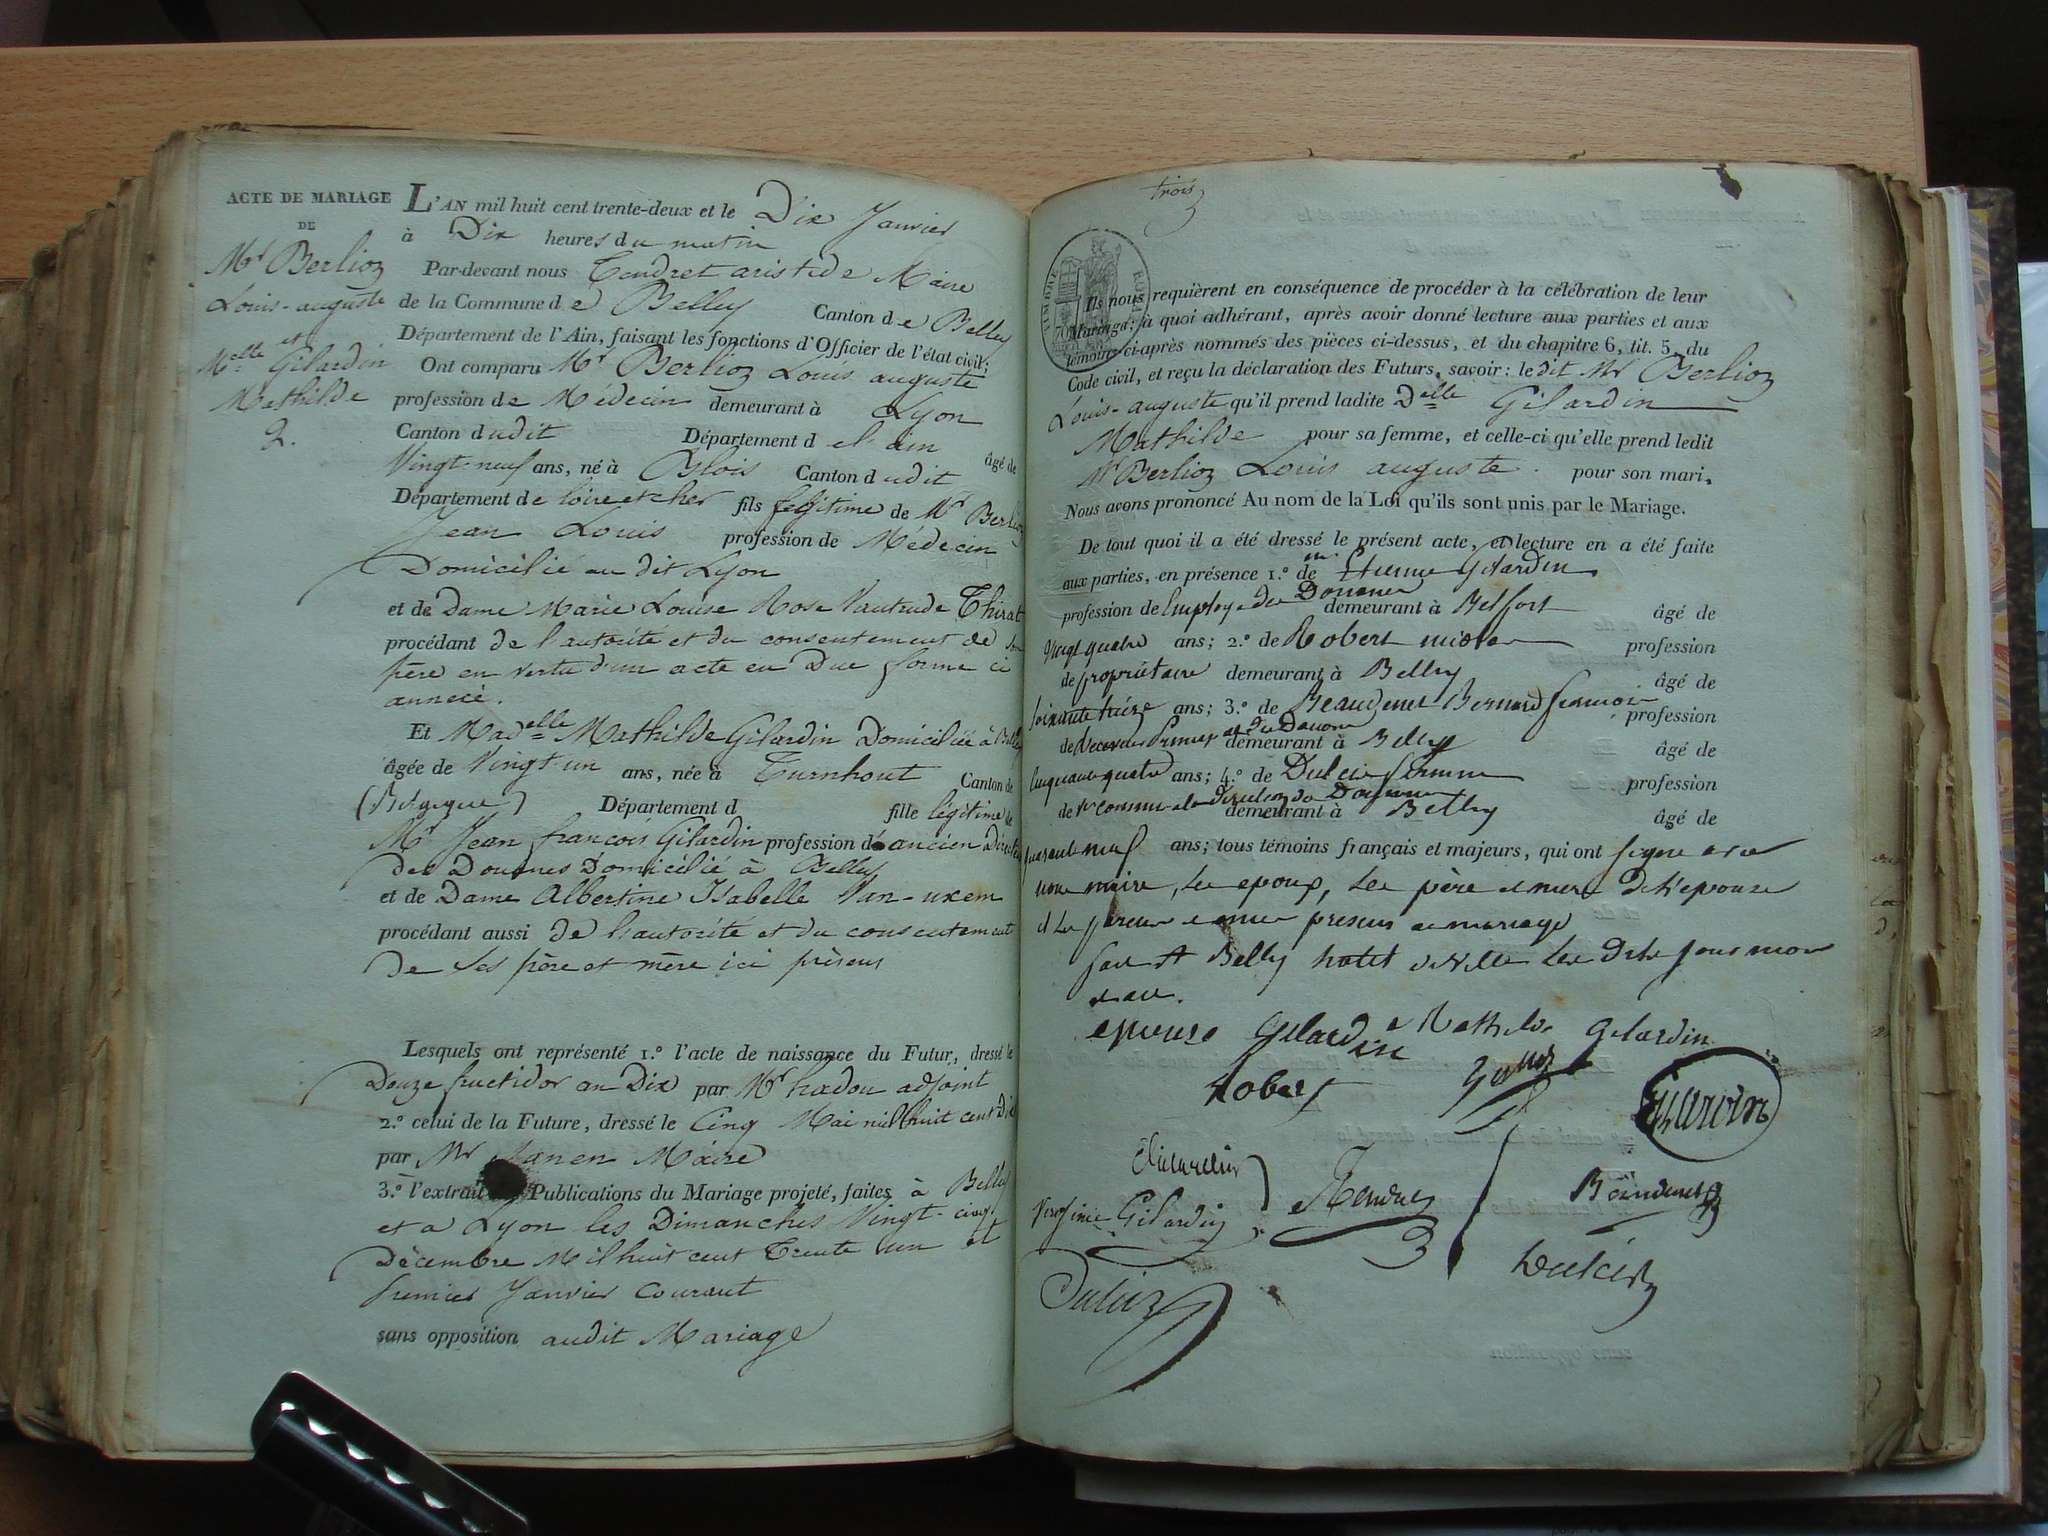 ACTE DE MARIAGE
DE
Mr Berlioz
Louis-auguste
et
Melle Gilardin
Mathilde
2.
L'AN mil huit cent trente-deux et le Dix Janvier
à Dix heures du matin
Par-devant nous Tendret aristide Maire
de la Commune de Belley Canton de Belley
Département de l'Ain, faisant les fonctions d'Officier de l'état civil;
Ont comparu Mr Berlioz Louis auguste
profession de Médecin demeurant à Lyon
Canton dudit Département de l'ain âgé de
Vingt-neuf ans, né à Blois Canton dudit
Département de loire et cher fils légitime de Mr Berlioz
Jean Louis profession de Médecin
Domicilié au dit Lyon
et de Dame Marie Louise Rose Vautrude Thirat
procédant de l'autorité et du consentement de son
père en vertu d'un acte en Due forme ci
annexé.
Et Madelle Mathilde Gilardin Domiciliée à Belley
âgée de Vingt-un ans, née à Turnhout Canton de
(Belgique) Département d fille légitime de
Mr Jean françois Gilardin profession d'ancien Directeur
Des Douanes Domicilié à Belley
et de Dame Albertine Isabelle Van-uxem
procédant aussi de l'autorité et du consentement
De Ses père et mère ici présens
Lesquels ont représenté 1.º l'acte de naissance du Futur, dressé le
Douze fructidor an Dix par Mr hadou adjoint
2.º celui de la Future, dressé le Cinq Mai mil huit cent Dix
par Mr Maire
3.º l'extrait Publications du Mariage projeté, faites à Belley
et a Lyon les Dimanches Vingt-cinq
Décembre Mil huit cent Trente un et
premier Janvier Courant
sans opposition audit Mariage
trois
TIMBRE ROYAL
70
Ils nous requièrent en conséquence de procéder à la célébration de leur
Mariage; à quoi adhérant, après avoir donné lecture aux parties et aux
témoins ci-après nommés des pièces ci-dessus, et du chapitre 6, tit. 5, du
Code civil, et reçu la déclaration des Futurs, savoir: ledit Mr Berlioz
Louis-auguste qu'il prend ladite Delle Gilardin
Mathilde pour sa femme, et celle-ci qu'elle prend ledit
Mr Berlioz Louis auguste pour son mari.
Nous avons prononcé Au nom de la Loi qu'ils sont unis par le Mariage.
De tout quoi il a été dressé le présent acte, et lecture en a été faite
aux parties, en présence 1.º de mr Etienne Gilardin
profession de Employé des Douanes demeurant à Belfort âgé de
vingt quatre ans; 2.º de Robert profession
de propriétaire demeurant à Belley âgé de
soixante treize ans; 3.º de Beaudenet Bernard françois profession
de Receveur Principal des Douanes demeurant à Belley âgé de
cinquante quatre ans; 4.º de Dulcis profession
de 1er Commis a la Direction des Douanes demeurant à Belley âgé de
quarante neuf ans; tous témoins français et majeurs, qui ont signé avec
nous maire, les epoux, les père et mere de l'epouse
et les parens et amis presens au mariage
fait A Belley hotel de Ville les Dits jour mois
et an.
epouse Gilardin Mathilde Gilardin
Robert
Gilardin
Virginie Gilardin
Tendret
Beaudenet
Dulcis